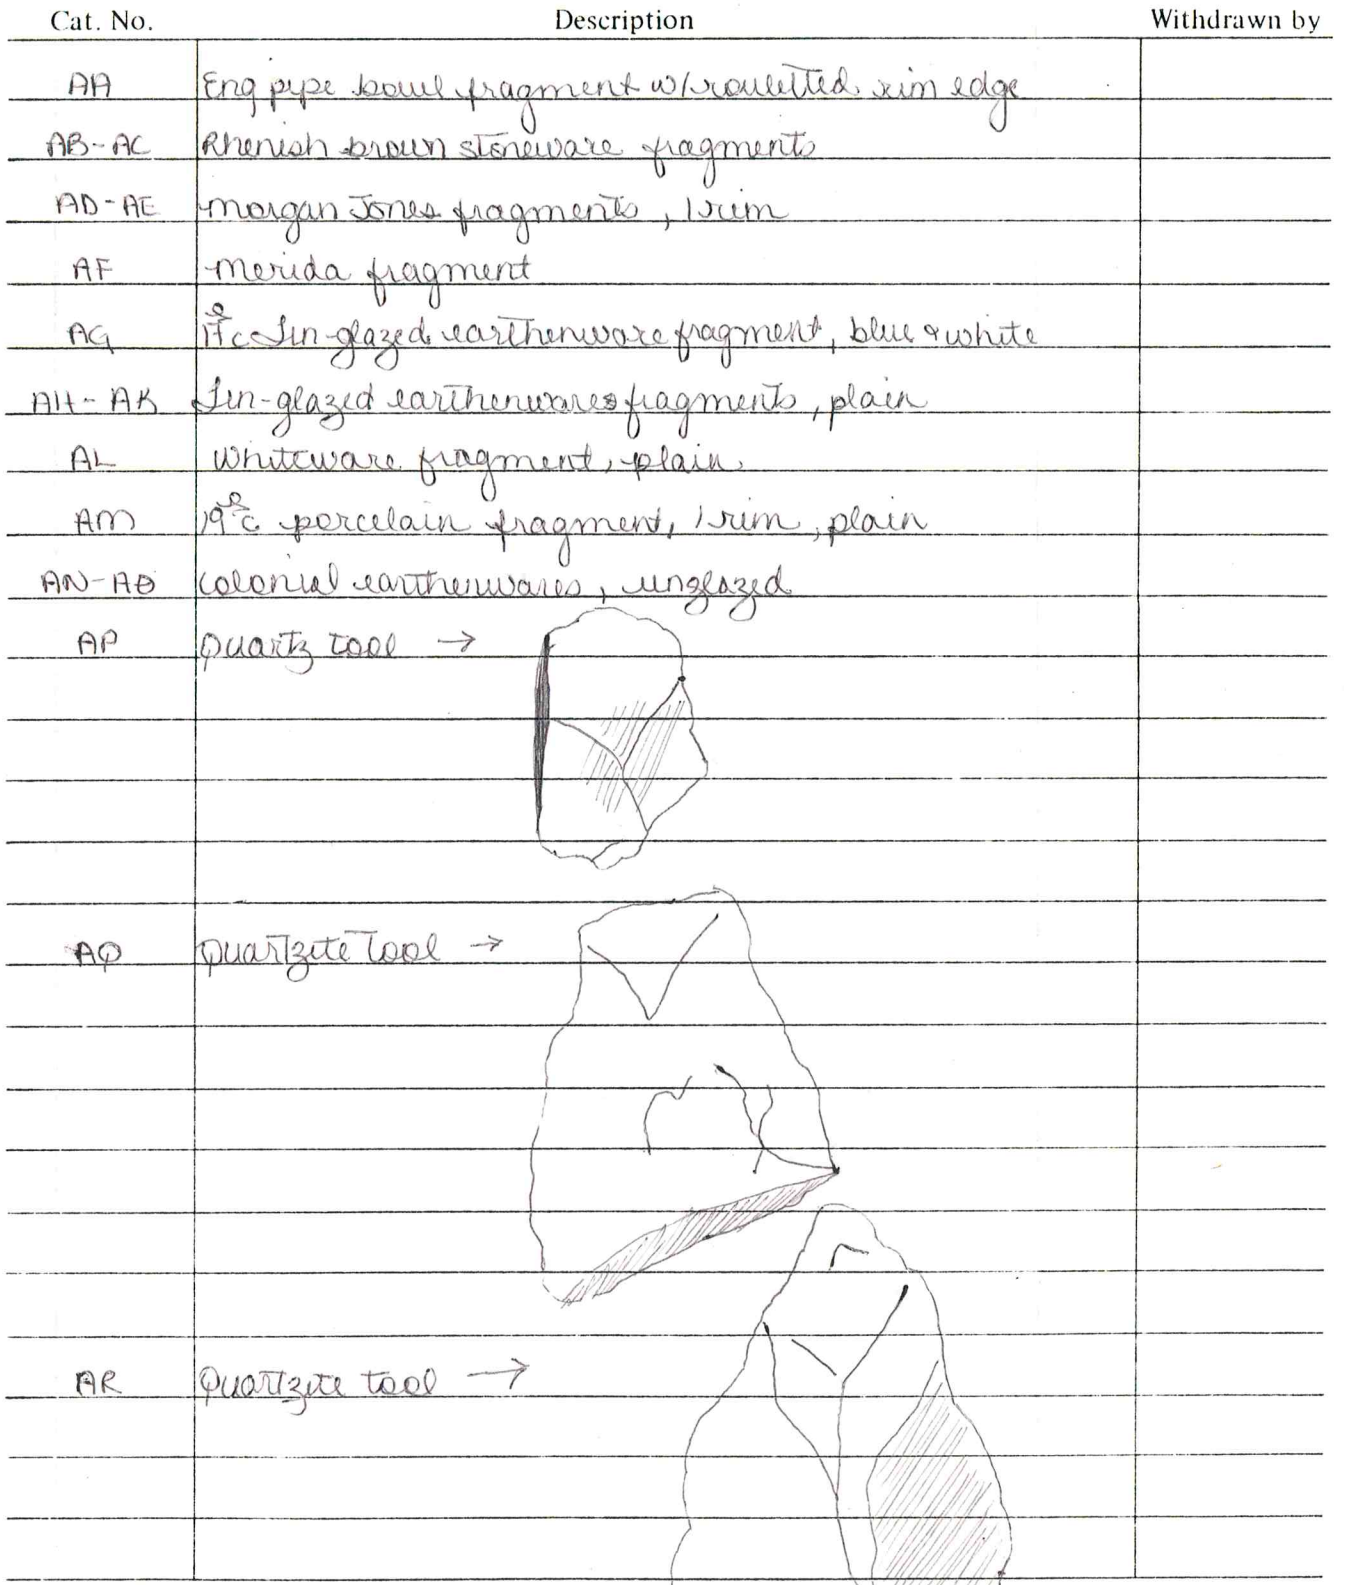 Cat. No. Description Withdrawn by
AA Eng pipe bowl fragment w/rouletted rim edge
AB-AC Rhenish brown stoneware fragments
AD-AE Morgan Jones fragments, 1 rim
AF Merida fragment
AG 17c Tin-glazed earthenware fragment, blue & white
AH-AK Tin-glazed earthenwares fragments, plain
AL Whiteware fragment, plain
AM 19c porcelain fragment, 1 rim, plain
AN-AO Colonial earthenwares, unglazed
AP Quartz tool →
AQ Quartzite tool →
AR Quartzite tool →